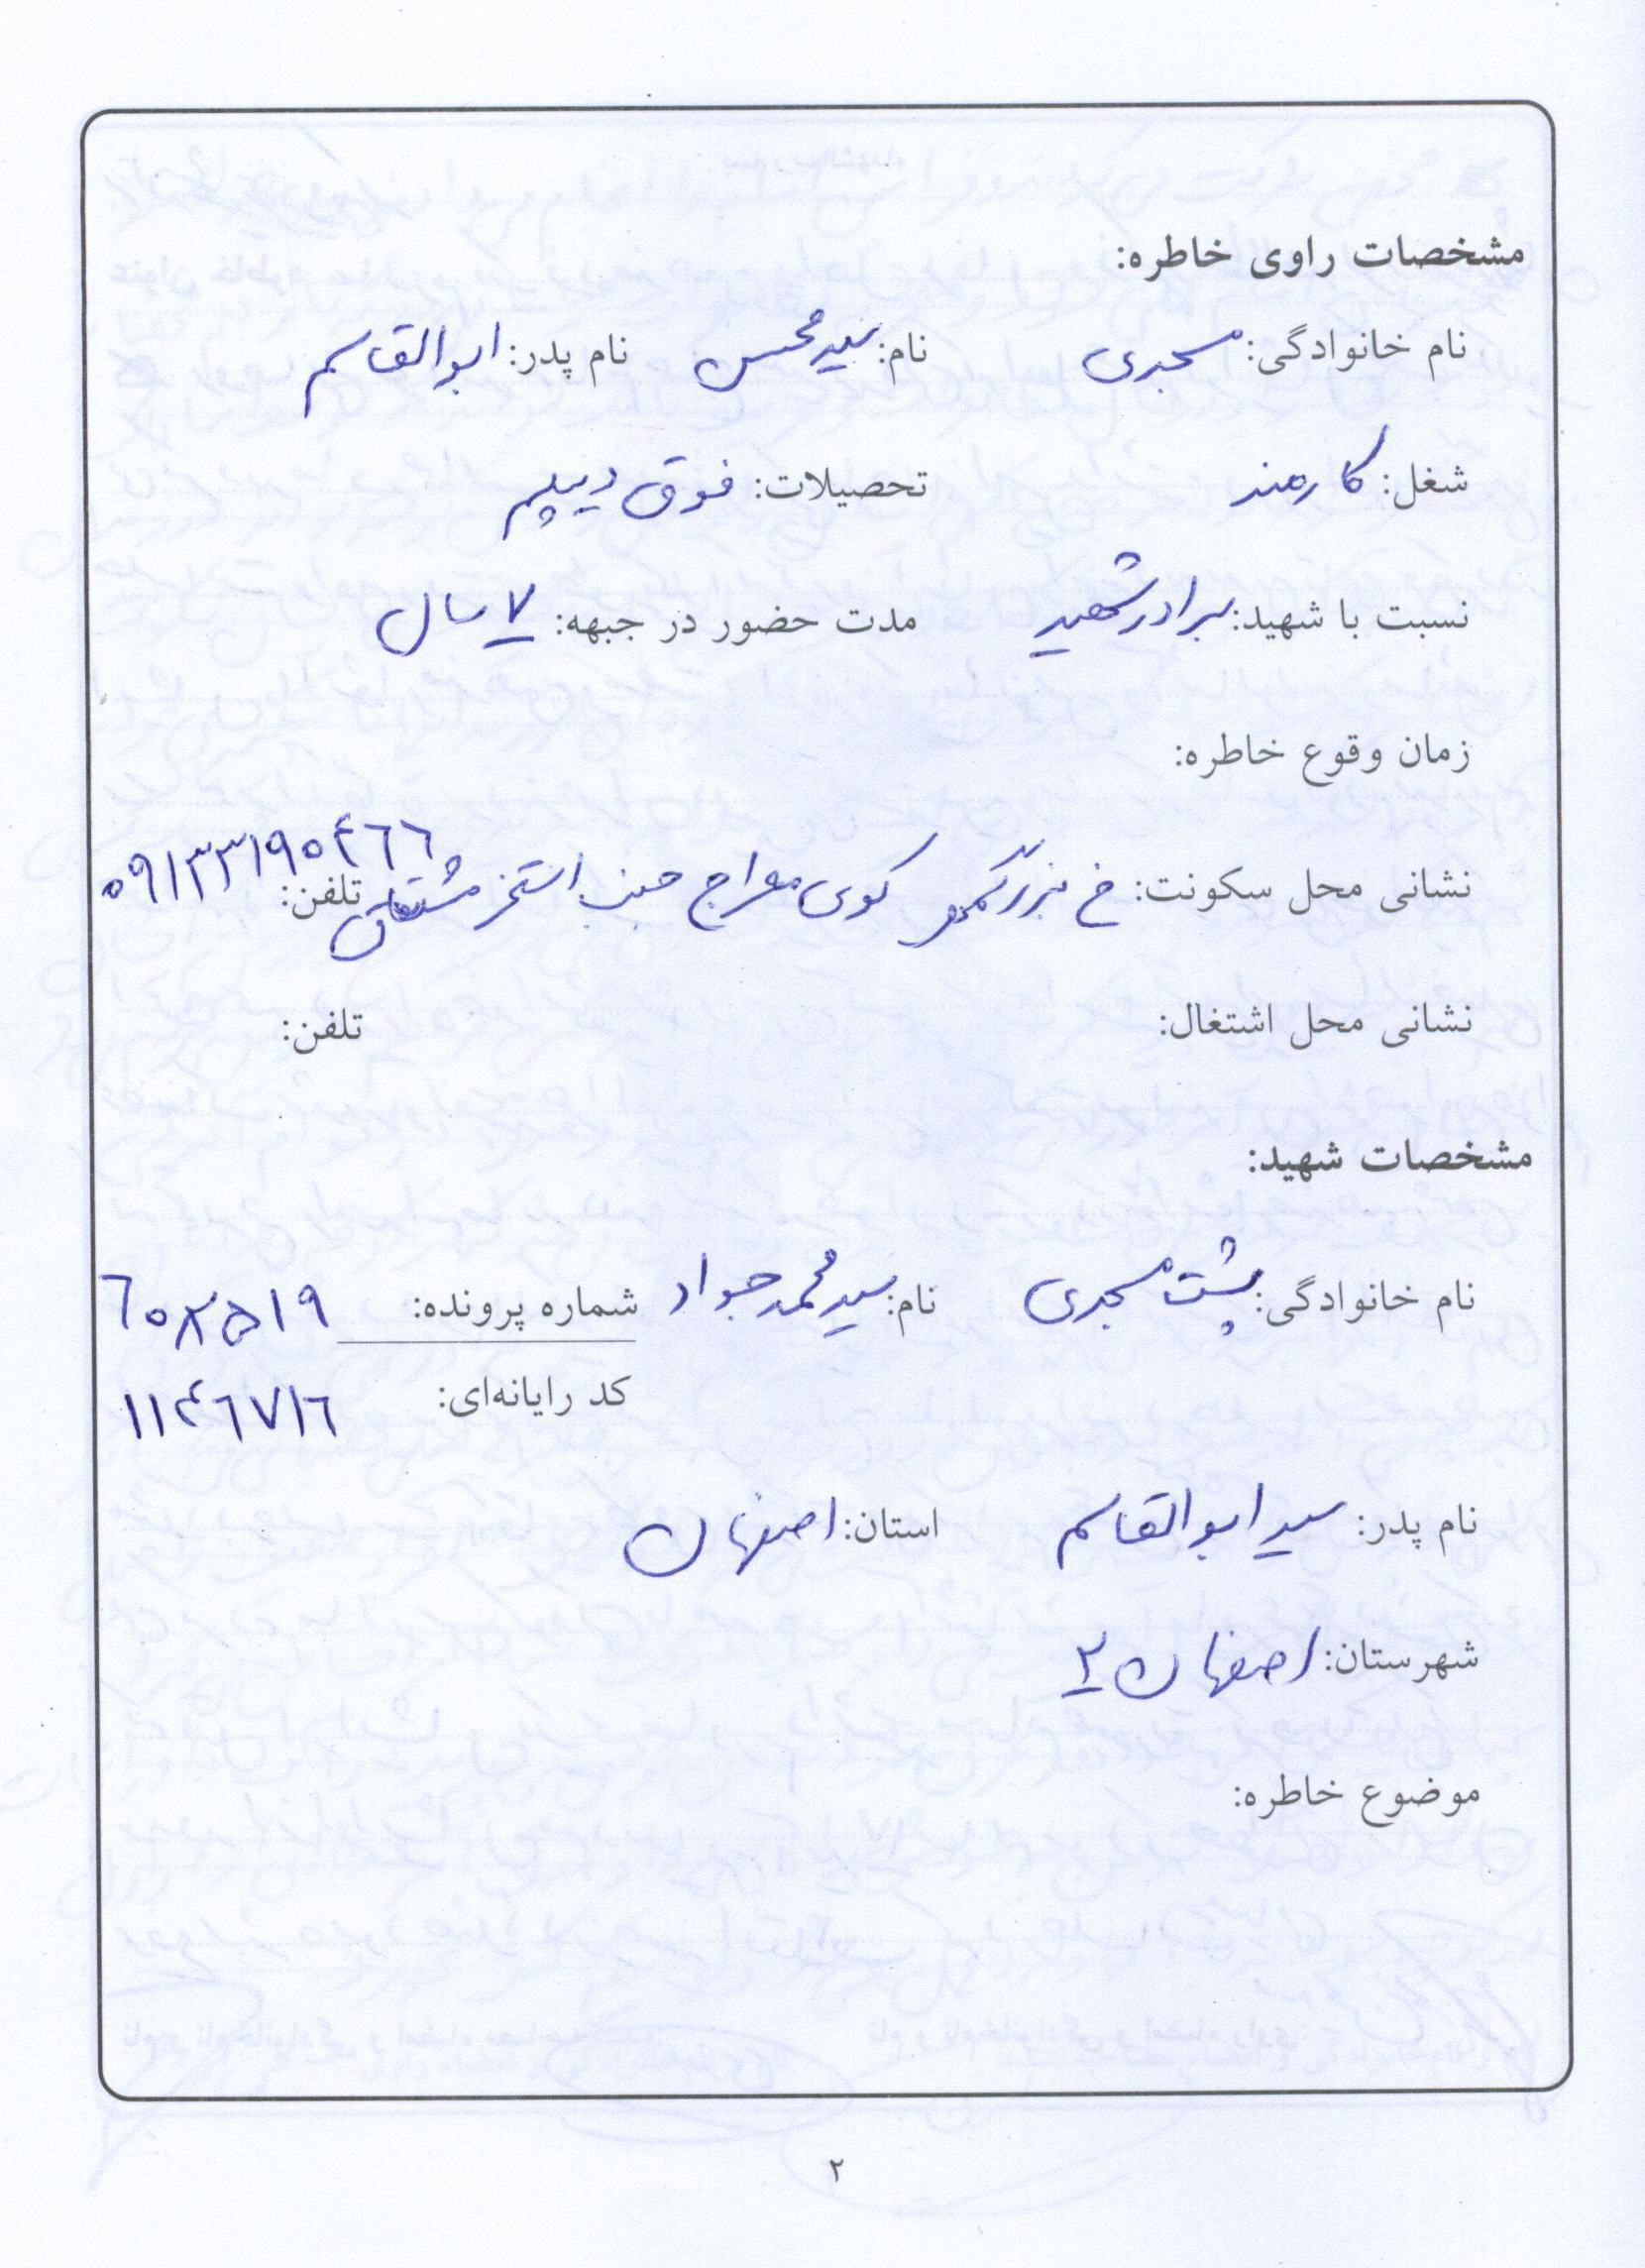 مشخصات راوی خاطره:
نام خانوادگی: مسجدی نام: سید محسن نام پدر: ابوالقاسم
شغل: کارمند تحصیلات: فوق دیپلم
نسبت با شهید: برادر شهید مدت حضور در جبهه: ۷ سال
زمان وقوع خاطره:
نشانی محل سکونت: خ بزرگمهر کوی معراج جنب استخر مشتاق تلفن: ۰۹۱۳۳۱۹۰۴۶۶
نشانی محل اشتغال: تلفن:
مشخصات شهید:
نام خانوادگی: پشت مسجدی نام: سید محمد جواد شماره پرونده: ۶۰۲۵۱۹
کد رایانه‌ای: ۱۱۴۶۷۱۶
نام پدر: سید ابوالقاسم استان: اصفهان
شهرستان: اصفهان ۲
موضوع خاطره:
۲